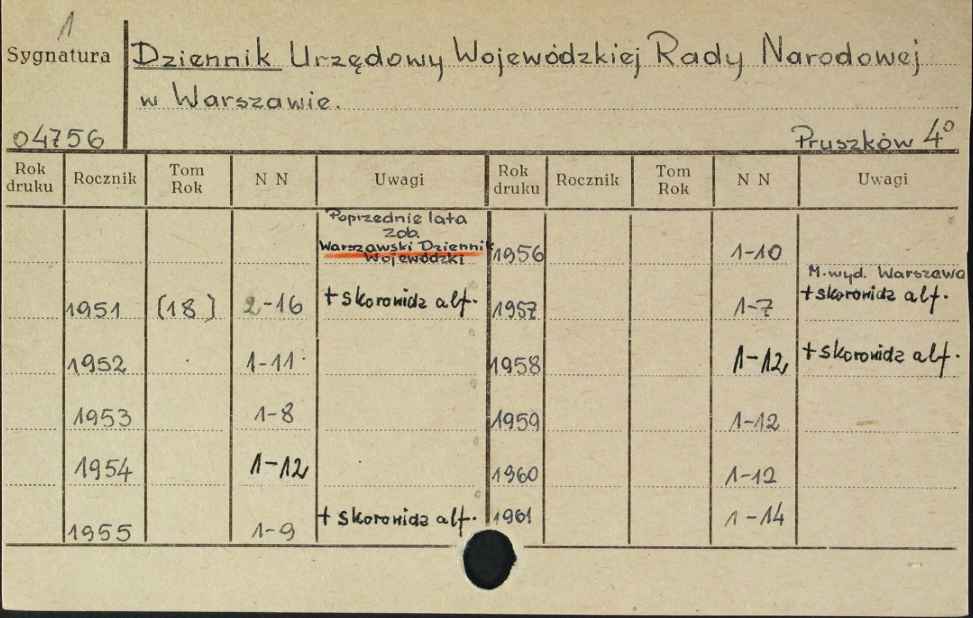 1
Sygnatura
Dziennik Urzędowy Wojewódzkiej Rady Narodowej
w Warszawie.
04756
Pruszków 4°
Rok druku Rocznik Tom Rok N N Uwagi Rok druku Rocznik Tom Rok N N Uwagi
Poprzednie lata
zob.
Warszawski Dziennik
Wojewódzki
1956 1-10
M. wyd. Warszawa
1951 (18) 2-16 + skorowidz alf. 1957 1-7 + skorowidz alf.
1952 1-11 1958 1-12 + skorowidz alf.
1953 1-8 1959 1-12
1954 1-12 1960 1-12
1955 1-9 + skorowidz alf. 1961 1-14